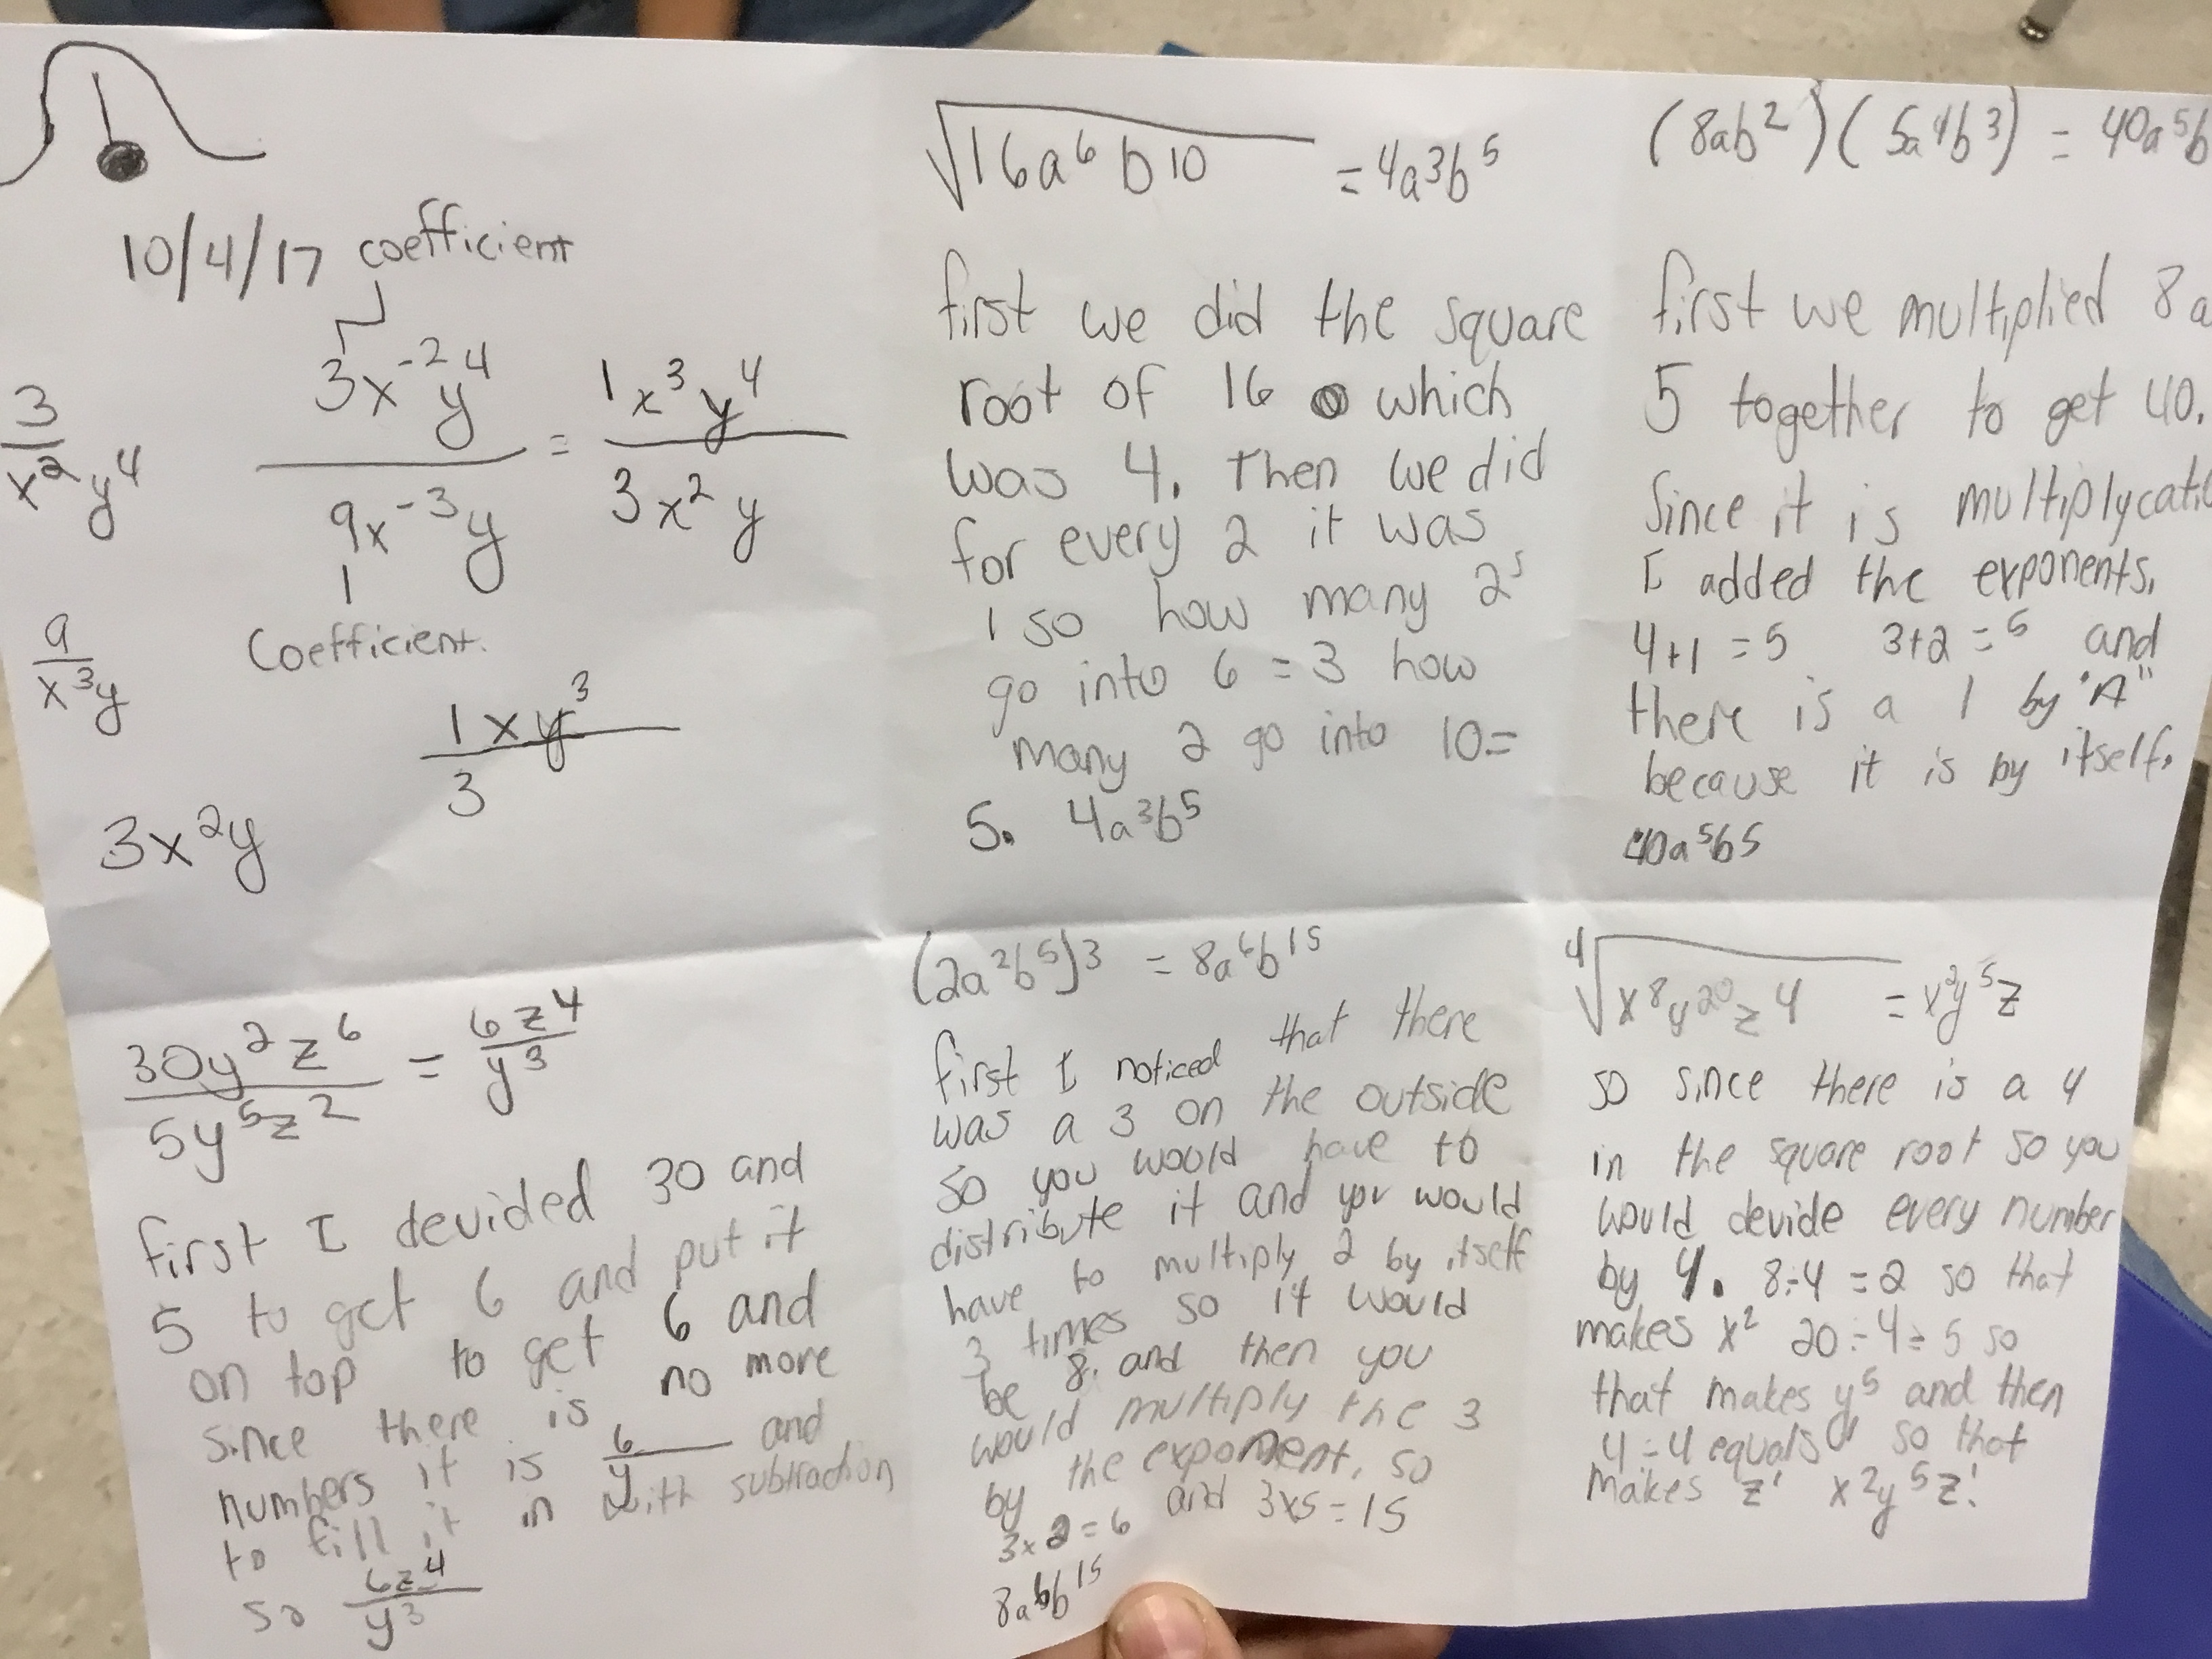 10/4/17 coefficient
3x⁻²y⁴ / 9x⁻³y = 1x³y⁴ / 3x²y
3 / x² y⁴
1
9 / x³y
Coefficient.
1xy³ / 3
3x²y
√16a⁶b10 = 4a³b⁵
first we did the square
root of 16 which
was 4. Then we did
for every 2 it was
1 so how many 2ˢ
go into 6 = 3 how
many 2 go into 10=
5. 4a³b⁵
(8ab²)(5a⁴b³) = 40a⁵b
first we multiplied 8a
5 together to get 40.
Since it is multiplycati
I added the exponents.
4+1=5 3+2=5 and
there is a 1 by "A"
because it is by itself.
40a⁵b5
30y²z⁶ / 5y⁵z² = 6z⁴ / y³
first I devided 30 and
5 to get 6 and put it
on top to get 6 and
since there is no more
numbers it is 6 / y and
to fill it in with subtraction
so 6z⁴ / y³
(2a²b⁵)3 = 8a⁶b¹⁵
first I noticed that there
was a 3 on the outside
so you would have to
distribute it and you would
have to multiply 2 by itself
3 times so it would
be 8. and then you
would multiply the 3
by the exponent, so
3x2=6 and 3x5=15
8a⁶b¹⁵
⁴√x⁸y²⁰z4 = x²y⁵z
so since there is a 4
in the square root so you
would devide every number
by 4. 8÷4=2 so that
makes x² 20÷4=5 so
that makes y⁵ and then
4÷4 equals so that
makes z¹ x2y⁵z¹